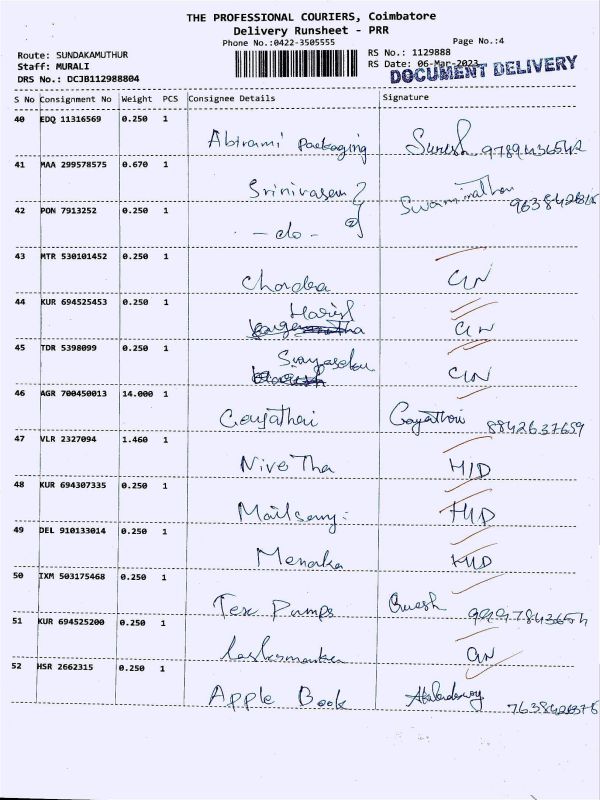 THE PROFESSIONAL COURIERS, Coimbatore
Delivery Runsheet - PRR
Phone No.:0422-3505555
Page No.:4
Route: SUNDAKAMUTHUR
RS No.: 1129888
Staff: MURALI
RS Date: 06-Mar-2023
DRS No.: DCJB112988804
DOCUMENT DELIVERY
S No Consignment No Weight PCS Consignee Details Signature
40 EDQ 11316569 0.250 1
Abirami Packaging Suresh 9789436542
41 MAA 299578575 0.670 1
Srinivasan Swaminathan
42 PON 7913252 0.250 1
- do -
43 MTR 530101452 0.250 1
Chandra
44 KUR 694525453 0.250 1
Harish
45 TDR 5398099 0.250 1
46 AGR 700450013 14.000 1
Gayathari Gayathari 8842637659
47 VLR 2327094 1.460 1
NiveTha H/D
48 KUR 694307335 0.250 1
H/D
49 DEL 910133014 0.250 1
Menaka H/D
50 IXM 503175468 0.250 1
Tex Pumps
51 KUR 694525200 0.250 1
52 HSR 2662315 0.250 1
Apple Book